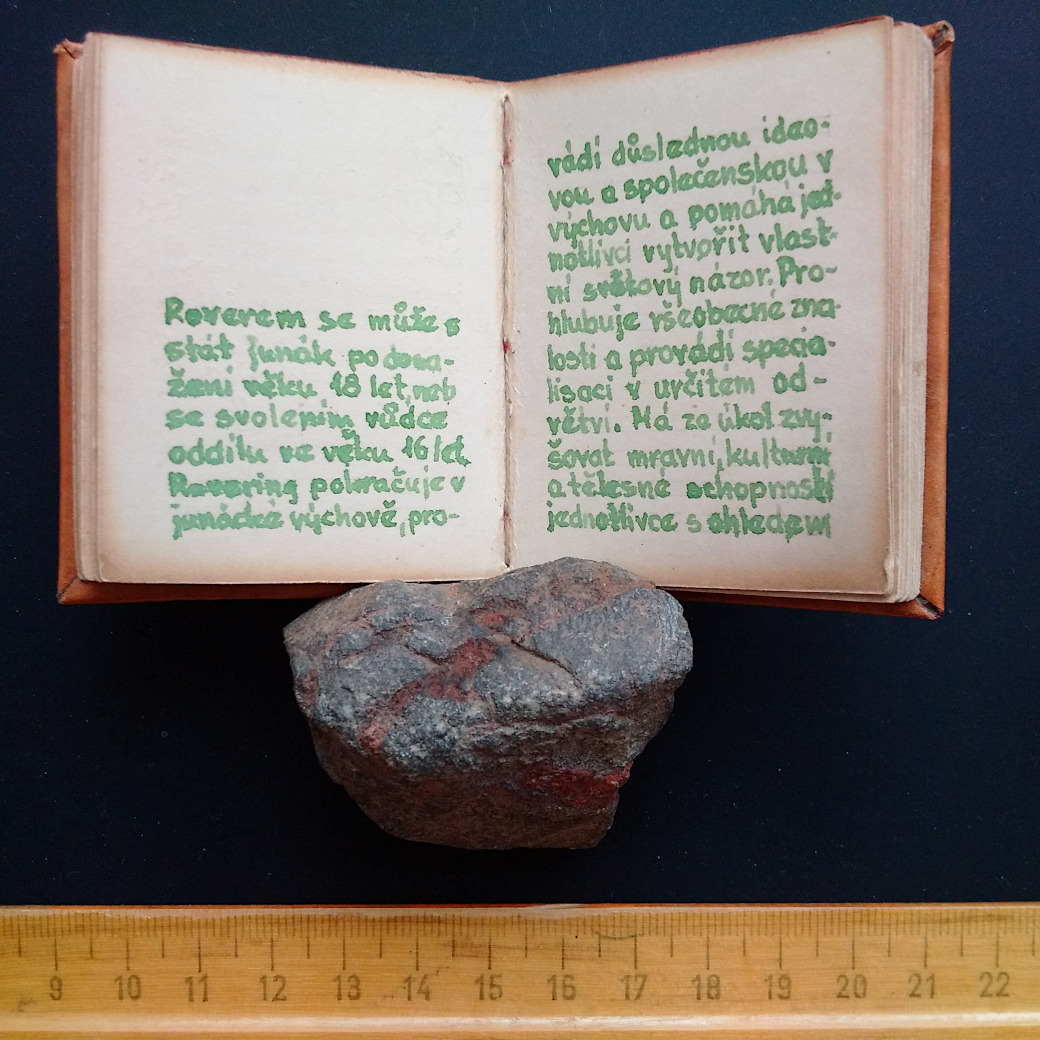 Roverem se může s
stát junák po dosa-
žení věku 18 let, neb
se svolením vůdce
oddílu ve věku 16 let.
Rovering pokračuje v
junácké výchově, pro-
vádí důslednou ideo-
vou a společenskou v
výchovu a pomáhá jed-
notlivci vytvořit vlast-
ní světový názor. Pro-
hlubuje všeobecné zna-
losti a provádí specia-
lisaci v určitém od-
větví. Má za úkol zvy-
šovat mravní, kulturní
a tělesné schopnosti
jednotlivce s ohledem
9 10 11 12 13 14 15 16 17 18 19 20 21 22